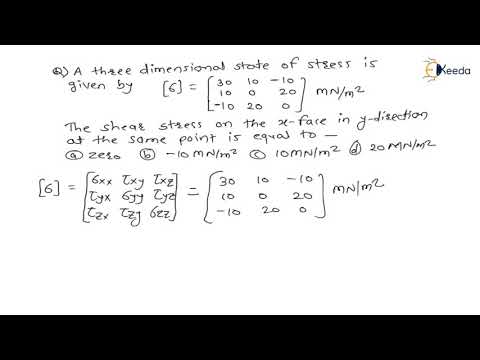 Q) A three dimensional state of stress is
given by [σ] = [30 10 -10
10 0 20
-10 20 0] MN/m²
The shear stress on the x-face in y-direction
at the same point is equal to —
(a) zero (b) -10 MN/m² (c) 10 MN/m² (d) 20 MN/m²
[σ] = [σxx τxy τxz
τyx σyy τyz
τzx τzy σzz] = [30 10 -10
10 0 20
-10 20 0] MN/m²
Ekeeda